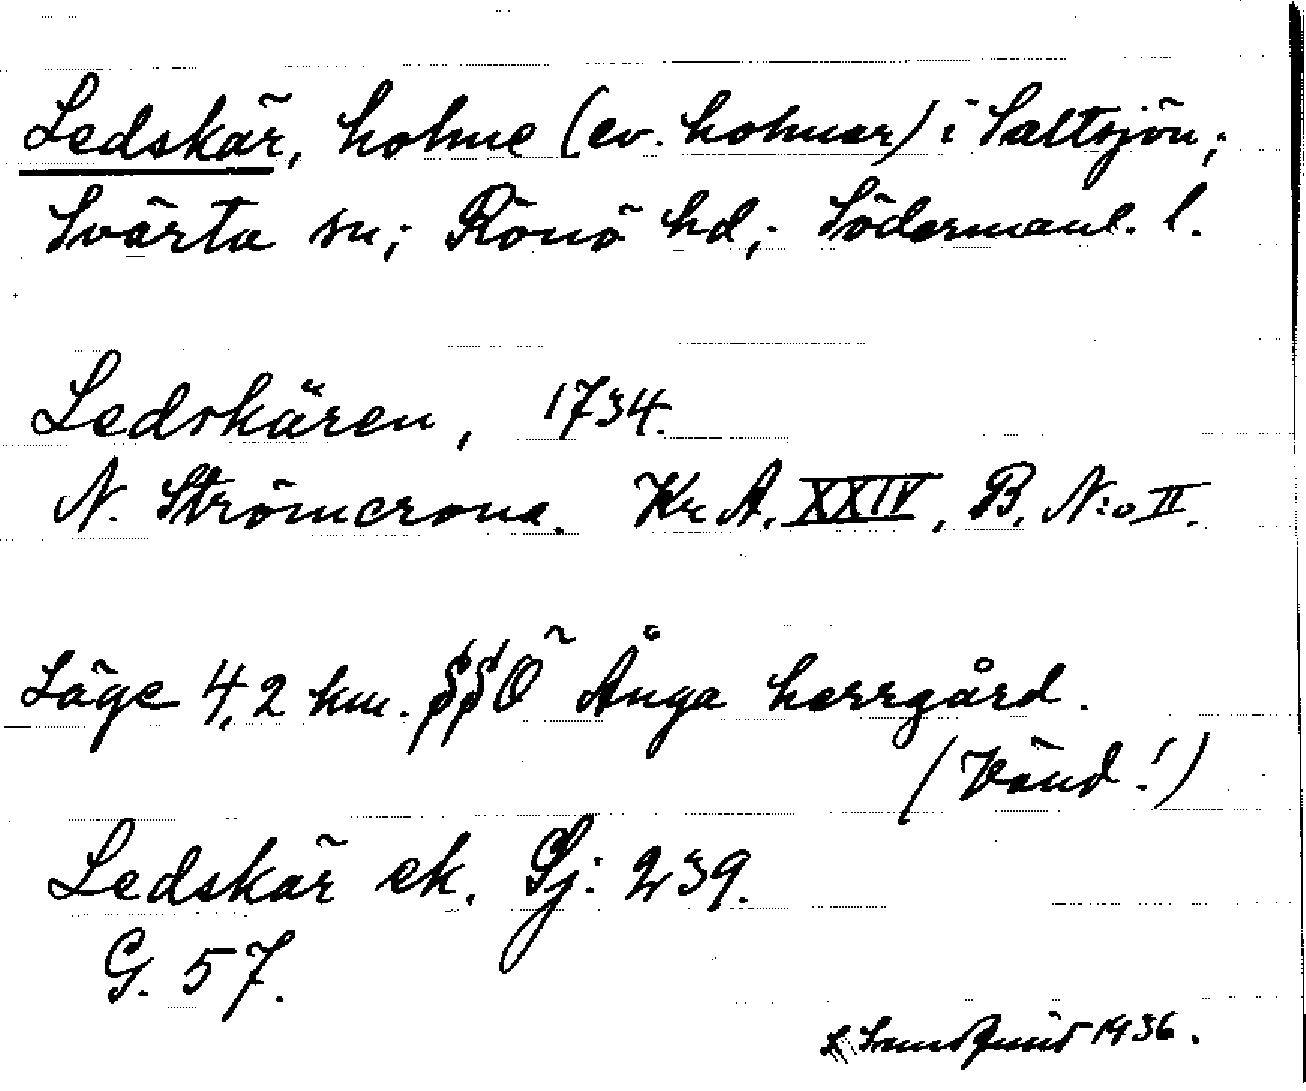 Ledskär, holme (ev. holmar) i Saltsjön;
Svärta sn; Rönö hd; Södermanl. l.
Ledskären, 1734.
N. Strömcrona. Kr. A. XXIV, B. N:o II.
Läge 4,2 km. SSÖ Ånga herrgård.
(Vänd!)
Ledskär ek. Sj: 239.
G. 57.
1936.